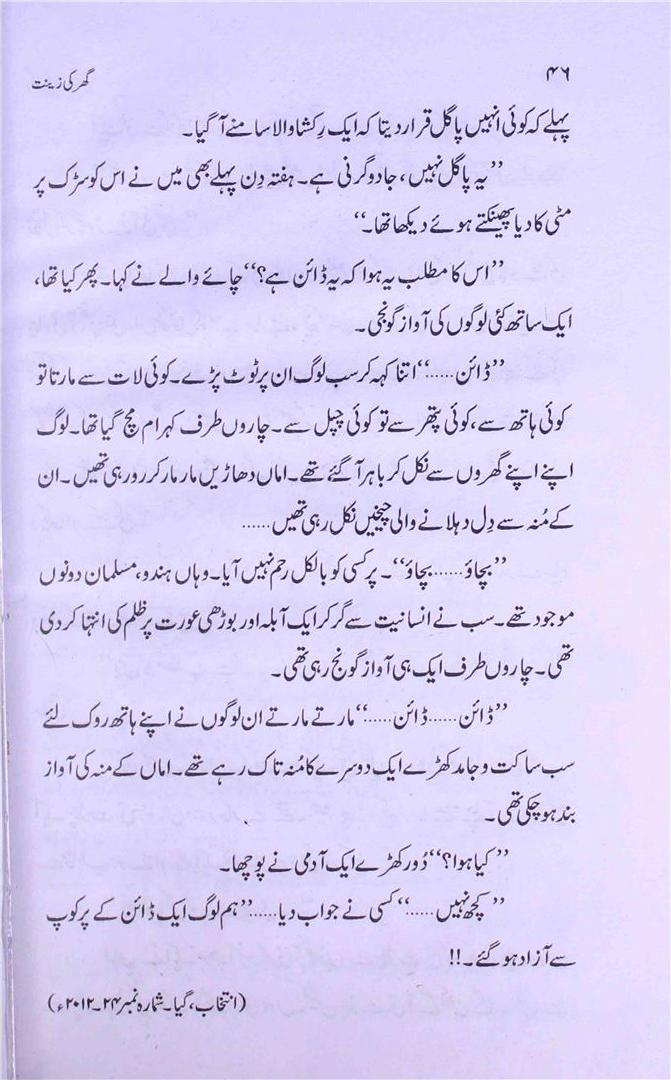 ۴۶
گھر کی زینت
پہلے کہ کوئی انہیں پاگل قرار دیتا کہ ایک رِکشا والا سامنے آ گیا۔
”یہ پاگل نہیں، جادوگرنی ہے۔ ہفتہ دِن پہلے بھی میں نے اس کو سڑک پر
مٹی کا دیا پھینکتے ہوئے دیکھا تھا۔“
”اس کا مطلب یہ ہوا کہ یہ ڈائن ہے؟“ چائے والے نے کہا۔ پھر کیا تھا،
ایک ساتھ کئی لوگوں کی آواز گونجی۔
”ڈائن......“ اتنا کہہ کر سب لوگ ان پر ٹوٹ پڑے۔ کوئی لات سے مارتا تو
کوئی ہاتھ سے، کوئی پتھر سے تو کوئی چپل سے۔ چاروں طرف کہرام مچ گیا تھا۔ لوگ
اپنے اپنے گھروں سے نکل کر باہر آ گئے تھے۔ اماں دھاڑیں مار مار کر رو رہی تھیں۔ ان
کے مُنہ سے دِل دہلانے والی چیخیں نکل رہی تھیں......
”بچاؤ...... بچاؤ“۔ پر کسی کو بالکل رحم نہیں آیا۔ وہاں ہندو، مسلمان دونوں
موجود تھے۔ سب نے انسانیت سے گر کر ایک آبلہ اور بوڑھی عورت پر ظلم کی انتہا کر دی
تھی۔ چاروں طرف ایک ہی آواز گونج رہی تھی۔
”ڈائن...... ڈائن.....“ مارتے مارتے ان لوگوں نے اپنے ہاتھ روک لئے
سب ساکت و جامد کھڑے ایک دوسرے کا مُنہ تاک رہے تھے۔ اماں کے منہ کی آواز
بند ہو چکی تھی۔
”کیا ہوا؟“ دُور کھڑے ایک آدمی نے پوچھا۔
”کچھ نہیں......“ کسی نے جواب دیا...... ”ہم لوگ ایک ڈائن کے پرکوپ
سے آزاد ہو گئے۔!!
(انتخاب، گیا۔ شمارہ نمبر ۲۴۔۲۰۱۲ء)